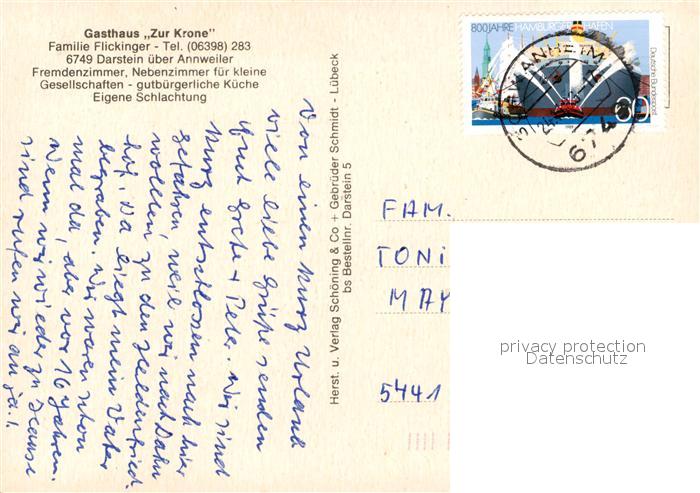 Gasthaus „Zur Krone"
Familie Flickinger - Tel. (06398) 283
6749 Darstein über Annweiler
Fremdenzimmer, Nebenzimmer für kleine
Gesellschaften - gutbürgerliche Küche
Eigene Schlachtung
Von einen kurz Urlaub
viele liebe Grüße senden
Grete + Peter. Wir sind
kurz entschlossen nach hier
gefahren, weil wir nach Dahn
wollen, zu den Heldenfried-
hof. Da liegt mein Vater
begraben. Wir waren schon
mal da, aber vor 16 Jahren.
Wenn wir wieder zu Hause
sind rufen wir an ja!!
Herst. u. Verlag Schöning & Co + Gebrüder Schmidt - Lübeck
bs Bestellnr. Darstein 5
800 JAHRE HAMBURGER HAFEN
Deutsche Bundespost
60
1989
674
FAM.
TONI
MAY
5441
privacy protection
Datenschutz